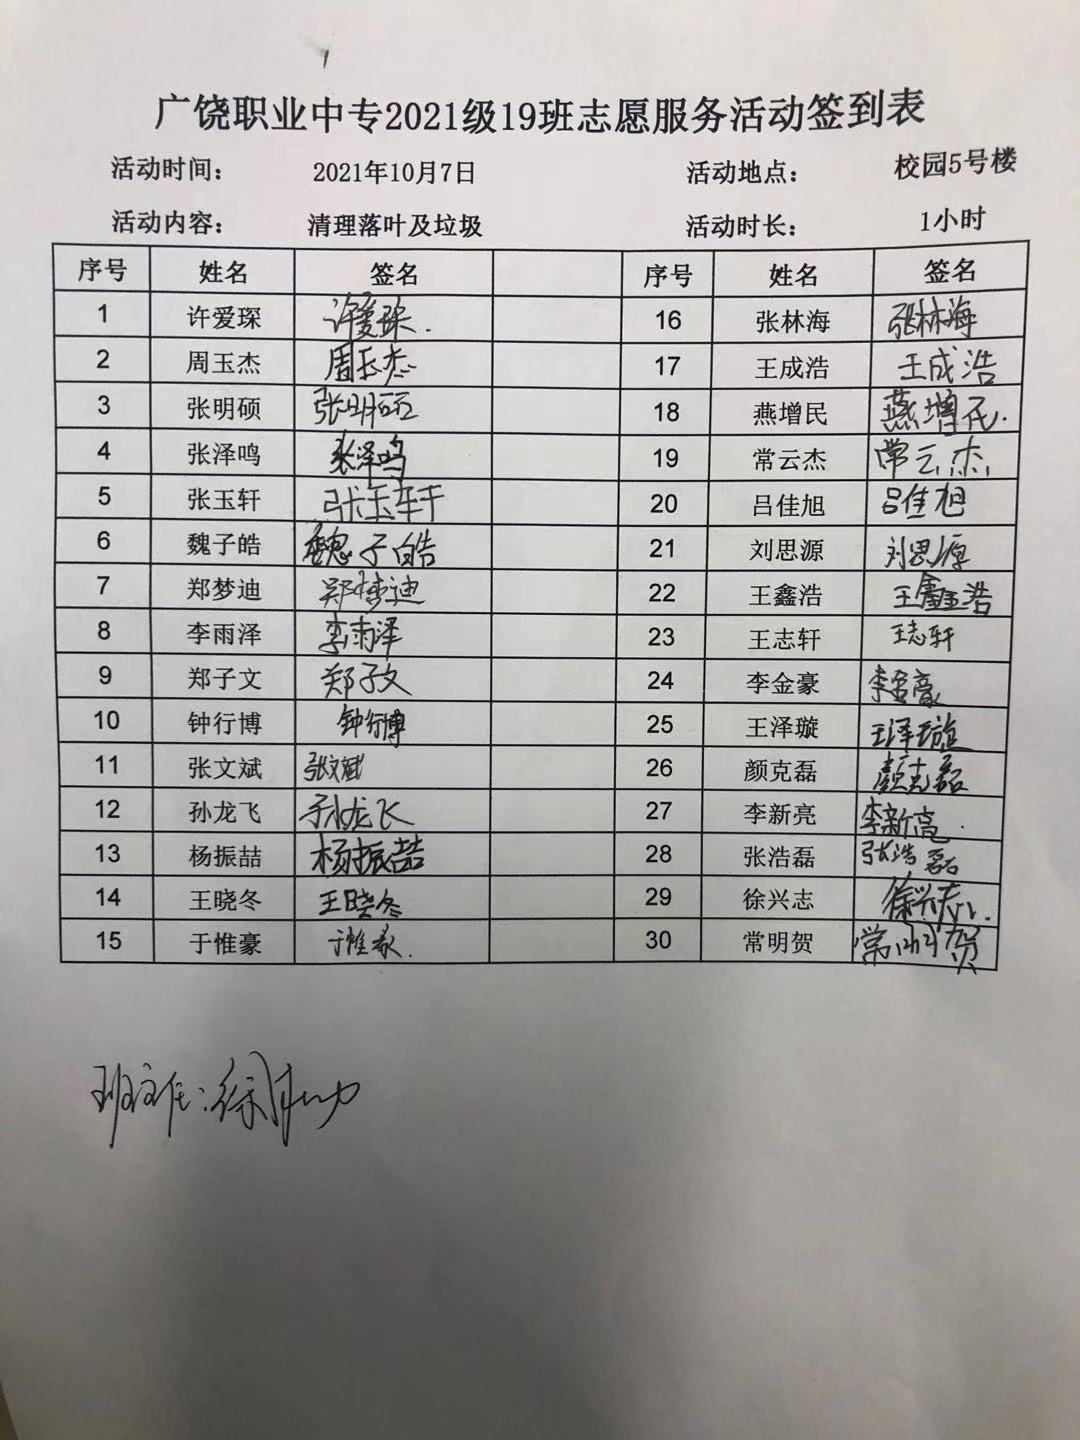 广饶职业中专2021级19班志愿服务活动签到表
活动时间： 2021年10月7日 活动地点： 校园5号楼
活动内容： 清理落叶及垃圾 活动时长： 1小时
序号 姓名 签名 序号 姓名 签名
1 许爱琛 许爱琛. 16 张林海 张林海
2 周玉杰 周玉杰 17 王成浩 王成浩
3 张明硕 张明硕 18 燕增民 燕增民.
4 张泽鸣 张泽鸣 19 常云杰 常云杰
5 张玉轩 张玉轩 20 吕佳旭 吕佳旭
6 魏子皓 魏子皓 21 刘思源 刘思源
7 郑梦迪 郑梦迪 22 王鑫浩 王鑫浩
8 李雨泽 李雨泽 23 王志轩 王志轩
9 郑子文 郑子文 24 李金豪 李金豪
10 钟行博 钟行博 25 王泽璇 王泽璇
11 张文斌 张文斌 26 颜克磊 颜克磊
12 孙龙飞 孙龙飞 27 李新亮 李新亮.
13 杨振喆 杨振喆 28 张浩磊 张浩磊
14 王晓冬 王晓冬 29 徐兴志 徐兴志.
15 于惟豪 于惟豪. 30 常明贺 常明贺
班主任：徐